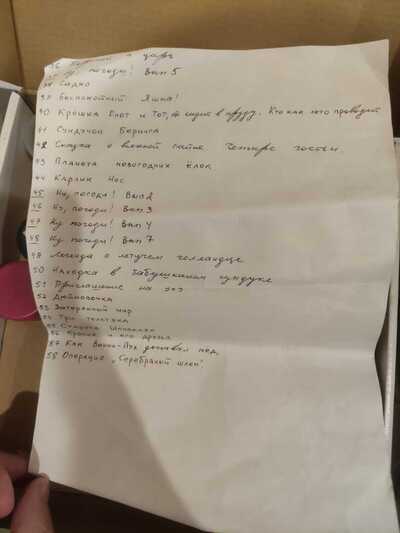 и царь
Ну, погоди! Вып 5
38 Садко
39 Беспокойный Яшка!
40 Крошка Енот и Тот, кто сидит в пруду. Кто как лето проводит
41 Сундучок Беринга
42 Сказка о важной тайне Четыре гостьи.
43 Планета новогодних ёлок
44 Карлик Нос
45 Ну, погоди! Вып 2
46 Ну, погоди! Вып 3
47 Ну погоди! Вып 4
48 Ну погоди! Вып 7
49 Легенда о летучем голландце
50 Находка в бабушкином сундуке
51 Приглашение на
52 Дюймовочка
53 Затерянный мир
54 Три толстяка
55 Старуха Шапокляк
56 и его друзья
57 Как Винни-Пух доставал мёд.
58 Операция „Серебряный шлем"